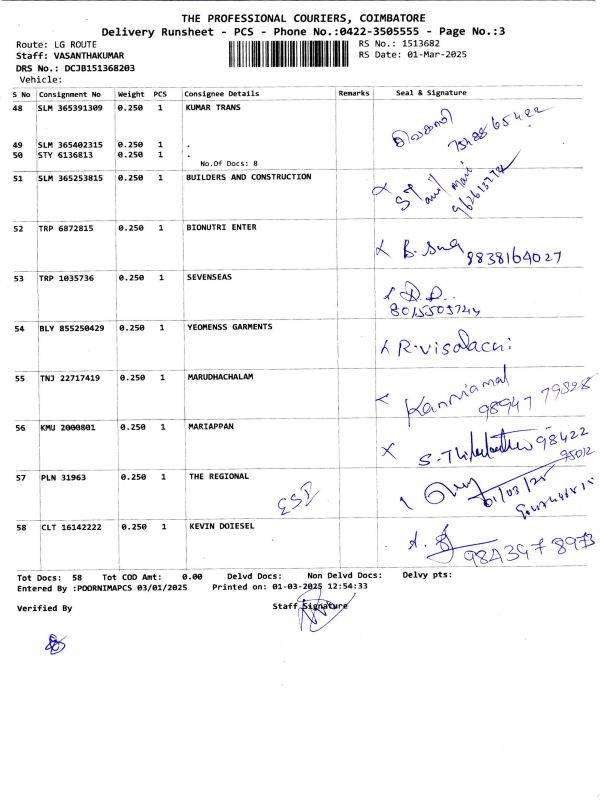 THE PROFESSIONAL COURIERS, COIMBATORE
Delivery Runsheet - PCS - Phone No.:0422-3505555 - Page No.:3
Route: LG ROUTE RS No.: 1513682
Staff: VASANTHAKUMAR RS Date: 01-Mar-2025
DRS No.: DCJB151368203
Vehicle:
S No Consignment No Weight PCS Consignee Details Remarks Seal & Signature
48 SLM 365391309 0.250 1 KUMAR TRANS
49 SLM 365402315 0.250 1 .
50 STY 6136813 0.250 1 .
No.Of Docs: 8
51 SLM 365253815 0.250 1 BUILDERS AND CONSTRUCTION
52 TRP 6872815 0.250 1 BIONUTRI ENTER
8838164027
53 TRP 1035736 0.250 1 SEVENSEAS
54 BLY 855250429 0.250 1 YEOMENSS GARMENTS
R.visalachi
55 TNJ 22717419 0.250 1 MARUDHACHALAM
Kanniamal
98947 79828
56 KMU 2000801 0.250 1 MARIAPPAN
98422
57 PLN 31963 0.250 1 THE REGIONAL
01/03/25
58 CLT 16142222 0.250 1 KEVIN DOIESEL
9843978973
Tot Docs: 58 Tot COD Amt: 0.00 Delvd Docs: Non Delvd Docs: Delvy pts:
Entered By :POORNIMAPCS 03/01/2025 Printed on: 01-03-2025 12:54:33
Verified By Staff Signature